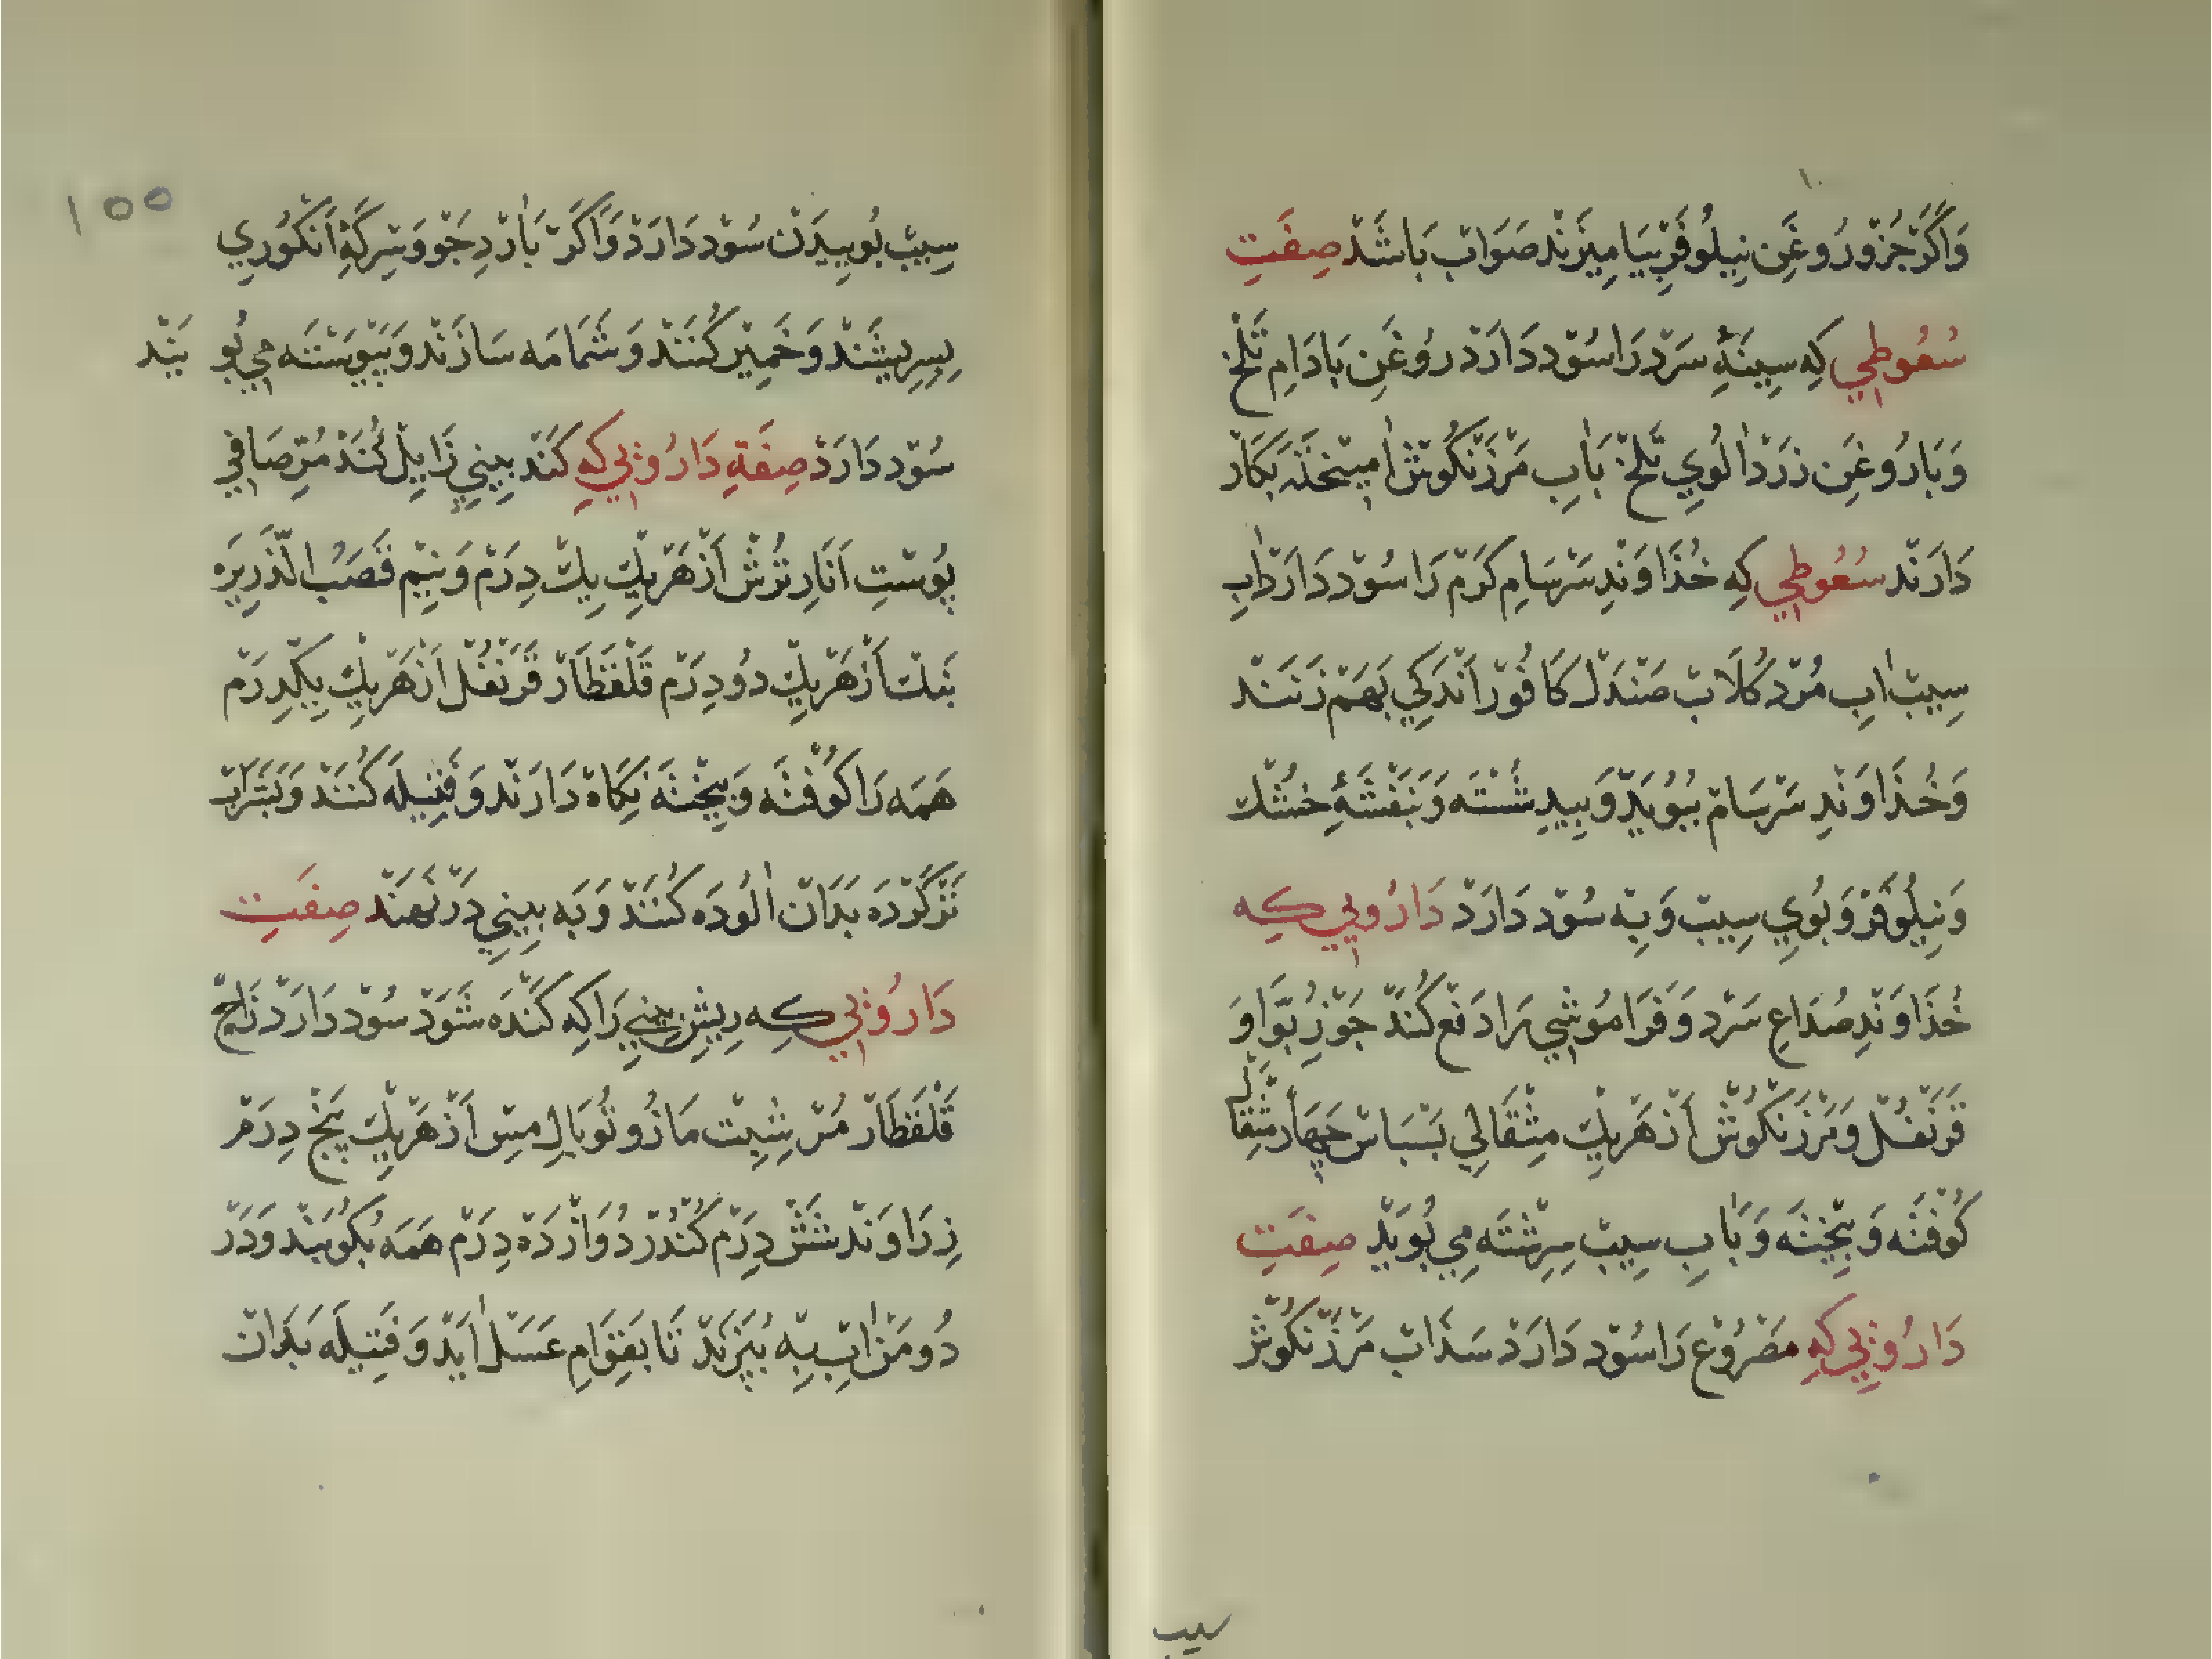 وَاَكَرْ جُزْو رُوغَنِ نِيلُوفَرْ بِيَامِيزَنْد صَوَابْ بَاشَذْ صِفَتِ
سُعُوطِي كِه سِينَهٔ سَرْد رَا سُوْد دَارَذ رُوغَنِ بَادَامِ تَلْخ
وَبَا رُوغَنِ زَرْدْالُويِ تَلْخ بَابِ مَرْزَنْكُوشْ اٰمِيخْتَه بَكَارْ
دَارَنْد سُعُوطِي كِه خُذَاوَنْدِ سَرْسَامِ كَرْم رَا سُوْد دَارَدْ اٰبِ
سِيبْ اٰبِ مُرْد كُلَابْ صَنْدَلْ كَافُورْ اَنْدَكِي بَهَمْ زَنَنْد
وَخُذَاوَنْدِ سَرْسَامْ بِبُويَدْ وَبِيدِ شُسْتَه وَبَنَفْشَهٔ خُشْك
وَنِيلُوفَرْ وَبُويِ سِيبْ وَبِهْ سُوْد دَارَدْ دَارُويِي كِه
خُذَاوَنْدِ صُدَاعِ سَرْد وَفَرَامُوشِي رَا دَفْع كُنَدْ جَوْزِ بَوَّا وَ
قَرَنْفُلْ وَمَرْزَنْكُوشْ اَزْ هَرْيِكْ مِثْقَالِي بَسْبَاسْ چَهَارْ مِثْقَالْ
كُوفْتَه وَبِيخْتَه وَبَاٰبِ سِيبْ سِرِشْتَه مِي بُويَدْ صِفَتِ
دَارُوئِي كِه مَصْرُوْع رَا سُوْد دَارَدْ سَذَابْ مَرْزَنْكُوشْ
سيب
١٥٥
سِيبْ بُويِيدَنْ سُوْد دَارَدْ وَاَكَرْ بَاٰرْدِ جَوْ وَسِرْكَهٔ اَنْكُورِي
بِسِرِيشَنْد وَخَمِيرْ كُنَنْد وَشَمَامَه سَازَنْد وَپَيْوَسْتَه مِي بُويَنْد
سُوْد دَارَدْ صِفَةِ دَارُوئِي كِه كَنْدِ بِينِي زَايِلْ كُنَدْ مُرِّ صَافِي
پُوسْتِ اَنَارِ تُرُشْ اَزْ هَرْيِكْ يِكْ دِرَمْ وَنِيمْ قَصَبُ الذَّرِيرَه
اَزْ هَرْيِكْ دُو دِرَمْ قَلْقَطَارْ قَرَنْفُلْ اَزْ هَرْيِكْ يِكْدِرَمْ
هَمَه رَا كُوفْتَه وَبِيخْتَه نِكَاهْ دَارَنْد وَفَتِيلَه كُنَنْد وَبَشَرَابْ
تَرْ كَرْدَه بَدَانْ اٰلُودَه كُنَنْد وَبَه بِينِي دَرْ نِهَنْد صِفَتِ
دَارُوئِي كِه رِيشِ بِينِي رَا كِه كَنْدَه شَوَدْ سُوْد دَارَدْ زَاجْ
قَلْقَطَارْ مُرْ شِبِتْ مَازُو تُوبَالِ مِسْ اَزْ هَرْيِكْ پَنْج دِرَمْ
زِرَاوَنْد شَشْ دِرَمْ كُنْدُرْ دُوَازْدَهْ دِرَمْ هَمَه بُكُوبَنْد وَدَرْ
دُو مَنْ اٰبِ بِهْ بُپَزَنْد تَا بَقِوَامِ عَسَلْ اٰيَدْ وَفَتِيلَه بَدَانْ